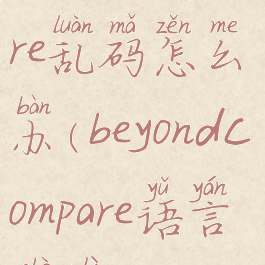 luàn mǎ zěn me
re乱码怎么
bàn
办(beyondc
yǔ yán
ompare语言